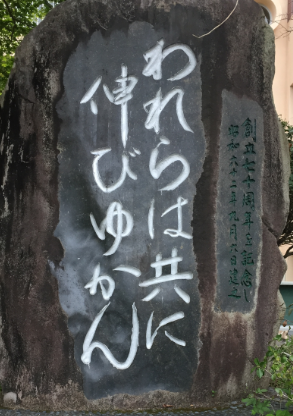 われらは共に
伸びゆかん
創立七十周年を記念し
昭和六十二年九月六日建之